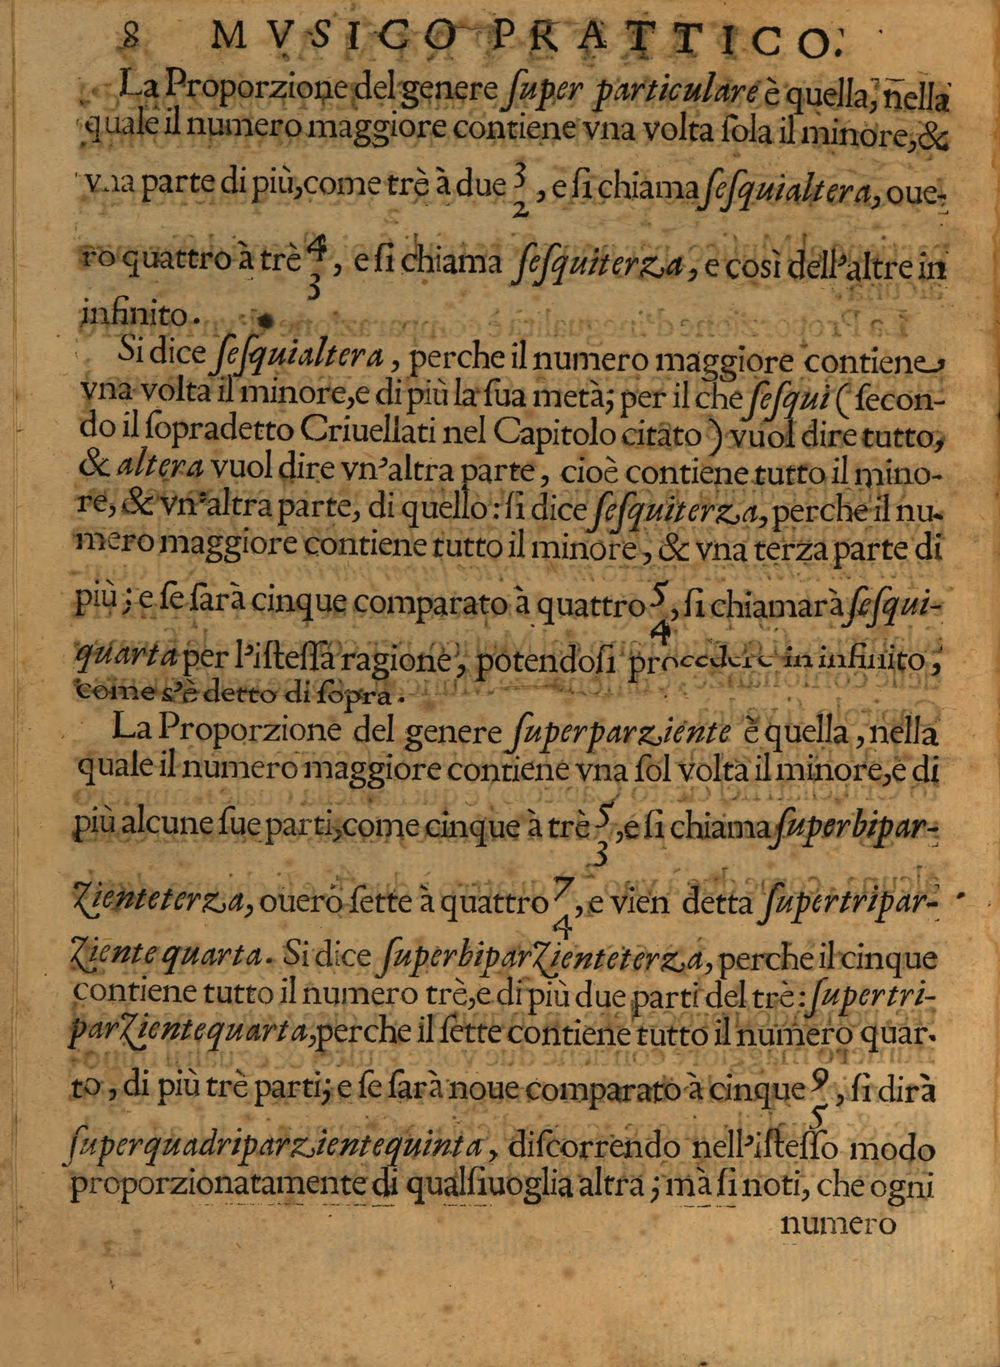 8 MVSICO PRATTICO.
La Proporzione del genere ſuper particulare è quella, nella
quale il numero maggiore contiene vna volta ſola il minore, &
vna parte di più, come trè à due 3/2, e ſi chiama ſeſquialtera, oue-
ro quattro à trè 4/3, e ſi chiama ſeſquiterza, e così dell'altre in
infinito.
Si dice ſeſquialtera, perche il numero maggiore contiene
vna volta il minore, e di più la ſua metà; per il che ſeſqui (ſecon-
do il ſopradetto Criuellati nel Capitolo citato) vuol dire tutto,
& altera vuol dire vn'altra parte, cioè contiene tutto il mino-
re, & vn'altra parte, di quello: ſi dice ſeſquiterza, perche il nu-
mero maggiore contiene tutto il minore, & vna terza parte di
più; e ſe ſarà cinque comparato à quattro 5/4, ſi chiamarà ſeſqui-
quarta per l'iſteſſa ragione, potendoſi procedere in infinito,
come s'è detto di ſopra.
La Proporzione del genere ſuperparziente è quella, nella
quale il numero maggiore contiene vna ſol volta il minore, e di
più alcune ſue parti, come cinque à trè 5/3, e ſi chiama ſuperbipar-
zienteterza, ouero ſette à quattro 7/4, e vien detta ſupertripar-
zientequarta. Si dice ſuperbiparzienteterza, perche il cinque
contiene tutto il numero trè, e di più due parti del trè: ſupertri-
parzientequarta, perche il ſette contiene tutto il numero quar-
to, di più trè parti; e ſe ſarà noue comparato à cinque 9/5, ſi dirà
ſuperquadriparzientequinta, diſcorrendo nell'iſteſſo modo
proporzionatamente di qualſiuoglia altra; mà ſi noti, che ogni
numero